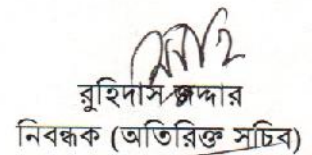 রুহিদাস জদ্দার
নিবন্ধক (অতিরিক্ত সচিব)